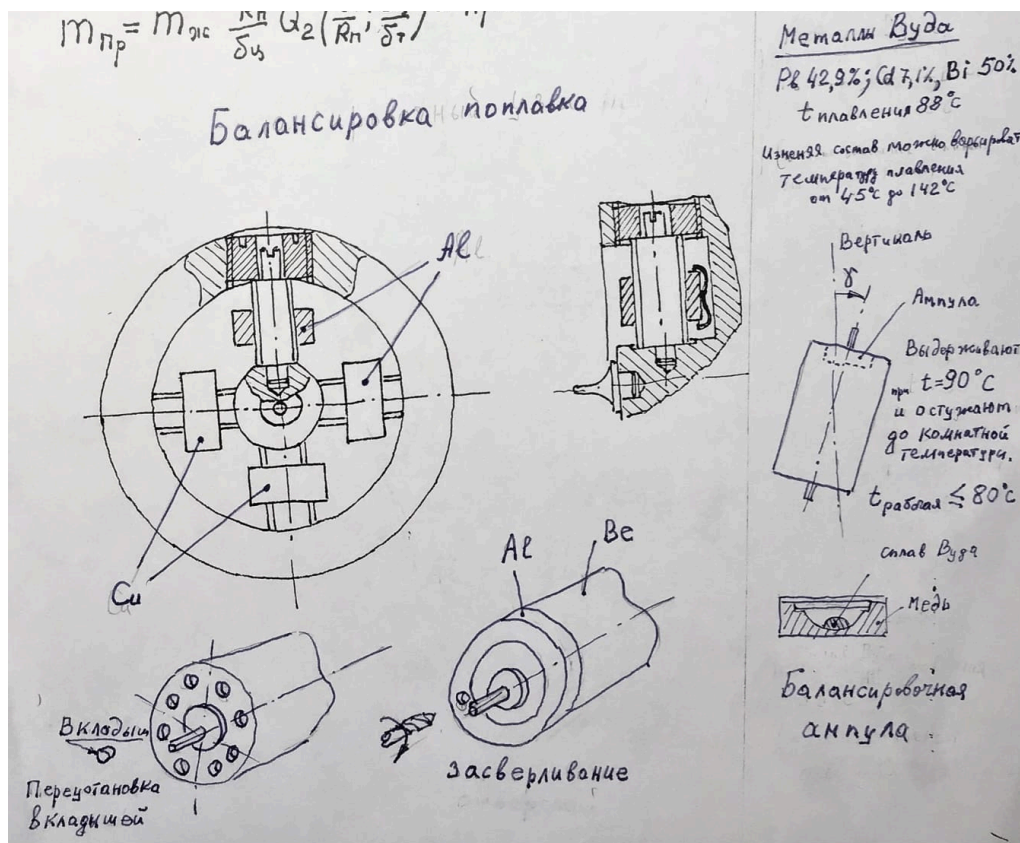 m пр = m ж Rп/δц Q₂(
Балансировка поплавка
Al
Cu
Вкладыш
Переустановка
вкладышей
Al
Be
Засверливание
Металлы Вуда
Pb 42,9%; Cd 7,1%, Bi 50%
t плавления 88°C
Изменяя состав можно варьироват
температуру плавления
от 45°C до 142°C
Вертикаль
γ
Ампула
Выдерживают
при t=90°C
и остужают
до комнатной
температуры.
t рабочая ≤ 80°C
сплав Вуда
Медь
Балансировочная
ампула